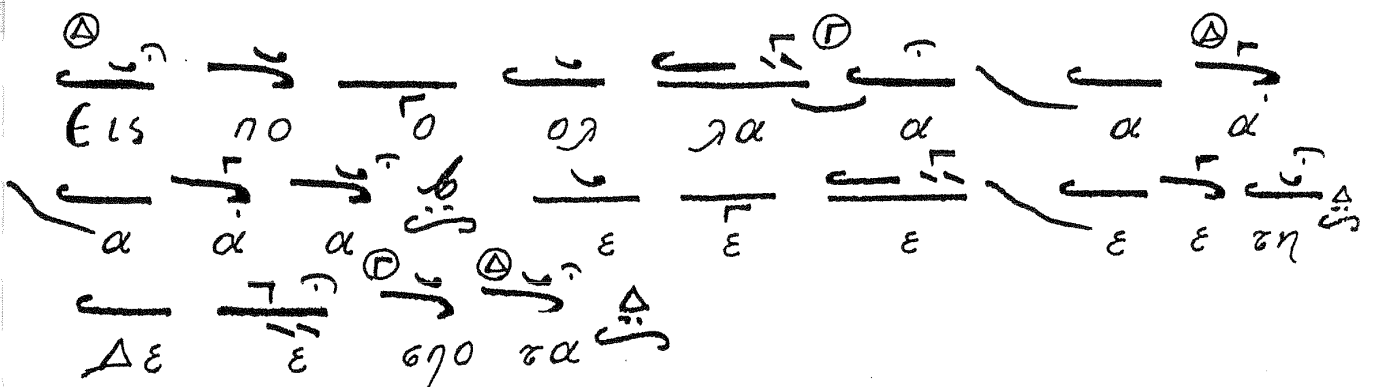 εις πο ο ολ λα α α α
α α α ε ε ε ε ε τη
Δε ε σπο τα